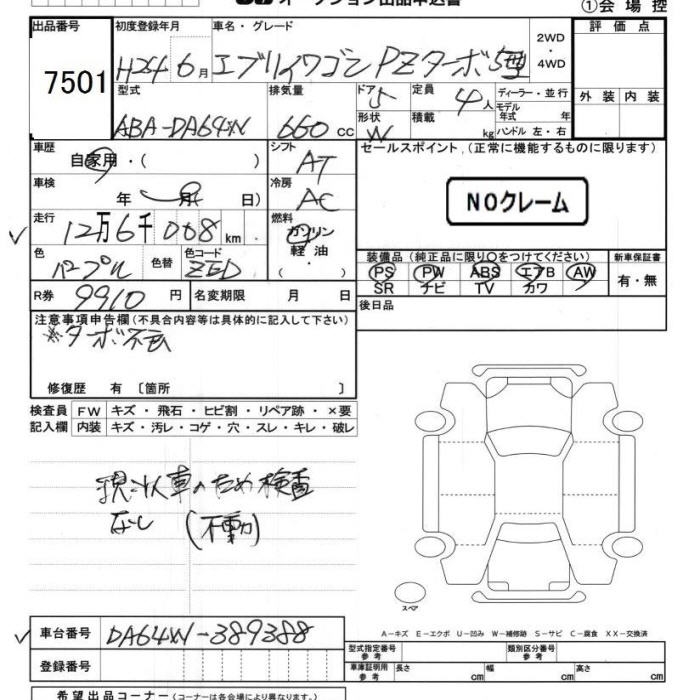 オークション出品申込書 ①会場控
出品番号 初度登録年月 車名・グレード 評価点
7501 H24 6月 エブリイワゴン PZターボ 2WD ・ 4WD
型式 排気量 ドア 5 定員 4人 ディーラー・並行 外装 内装
ABA-DA64W 660 CC 形状 W 積載 kg モデル年式 年 ハンドル 左・右
車歴 自家用・( ) シフト AT セールスポイント (正常に機能するものに限ります)
車検 年 月 日) 冷房 AC NOクレーム
走行 12万6千008km 燃料 ガソリン 軽油 ・( )
色 パープル 色替 色コード ZED 装備品(純正品に限り○をつけてください) 新車保証書
PS PW ABS エアB AW 有・無
SR ナビ TV カワ
R券 9910円 名変期限 月 日 後日品
注意事項申告欄(不具合内容等は具体的に記入して下さい)
※ターボ
修復歴 有 〔箇所 〕
検査員記入欄 FW キズ・飛石・ヒビ割・リペア跡・×要
内装 キズ・汚レ・コゲ・穴・スレ・キレ・破レ
現状車のため検査
なし (不動)
スペア
車台番号 DA64W-389388 A-キズ E-エクボ U-凹み W-補修跡 S-サビ C-腐食 XX-交換済
登録番号 型式指定番号 参考 類別区分番号 参考
車庫証明用 参考 長さ cm 幅 cm 高さ cm
希望出品コーナー(コーナーは各会場により異なります。)